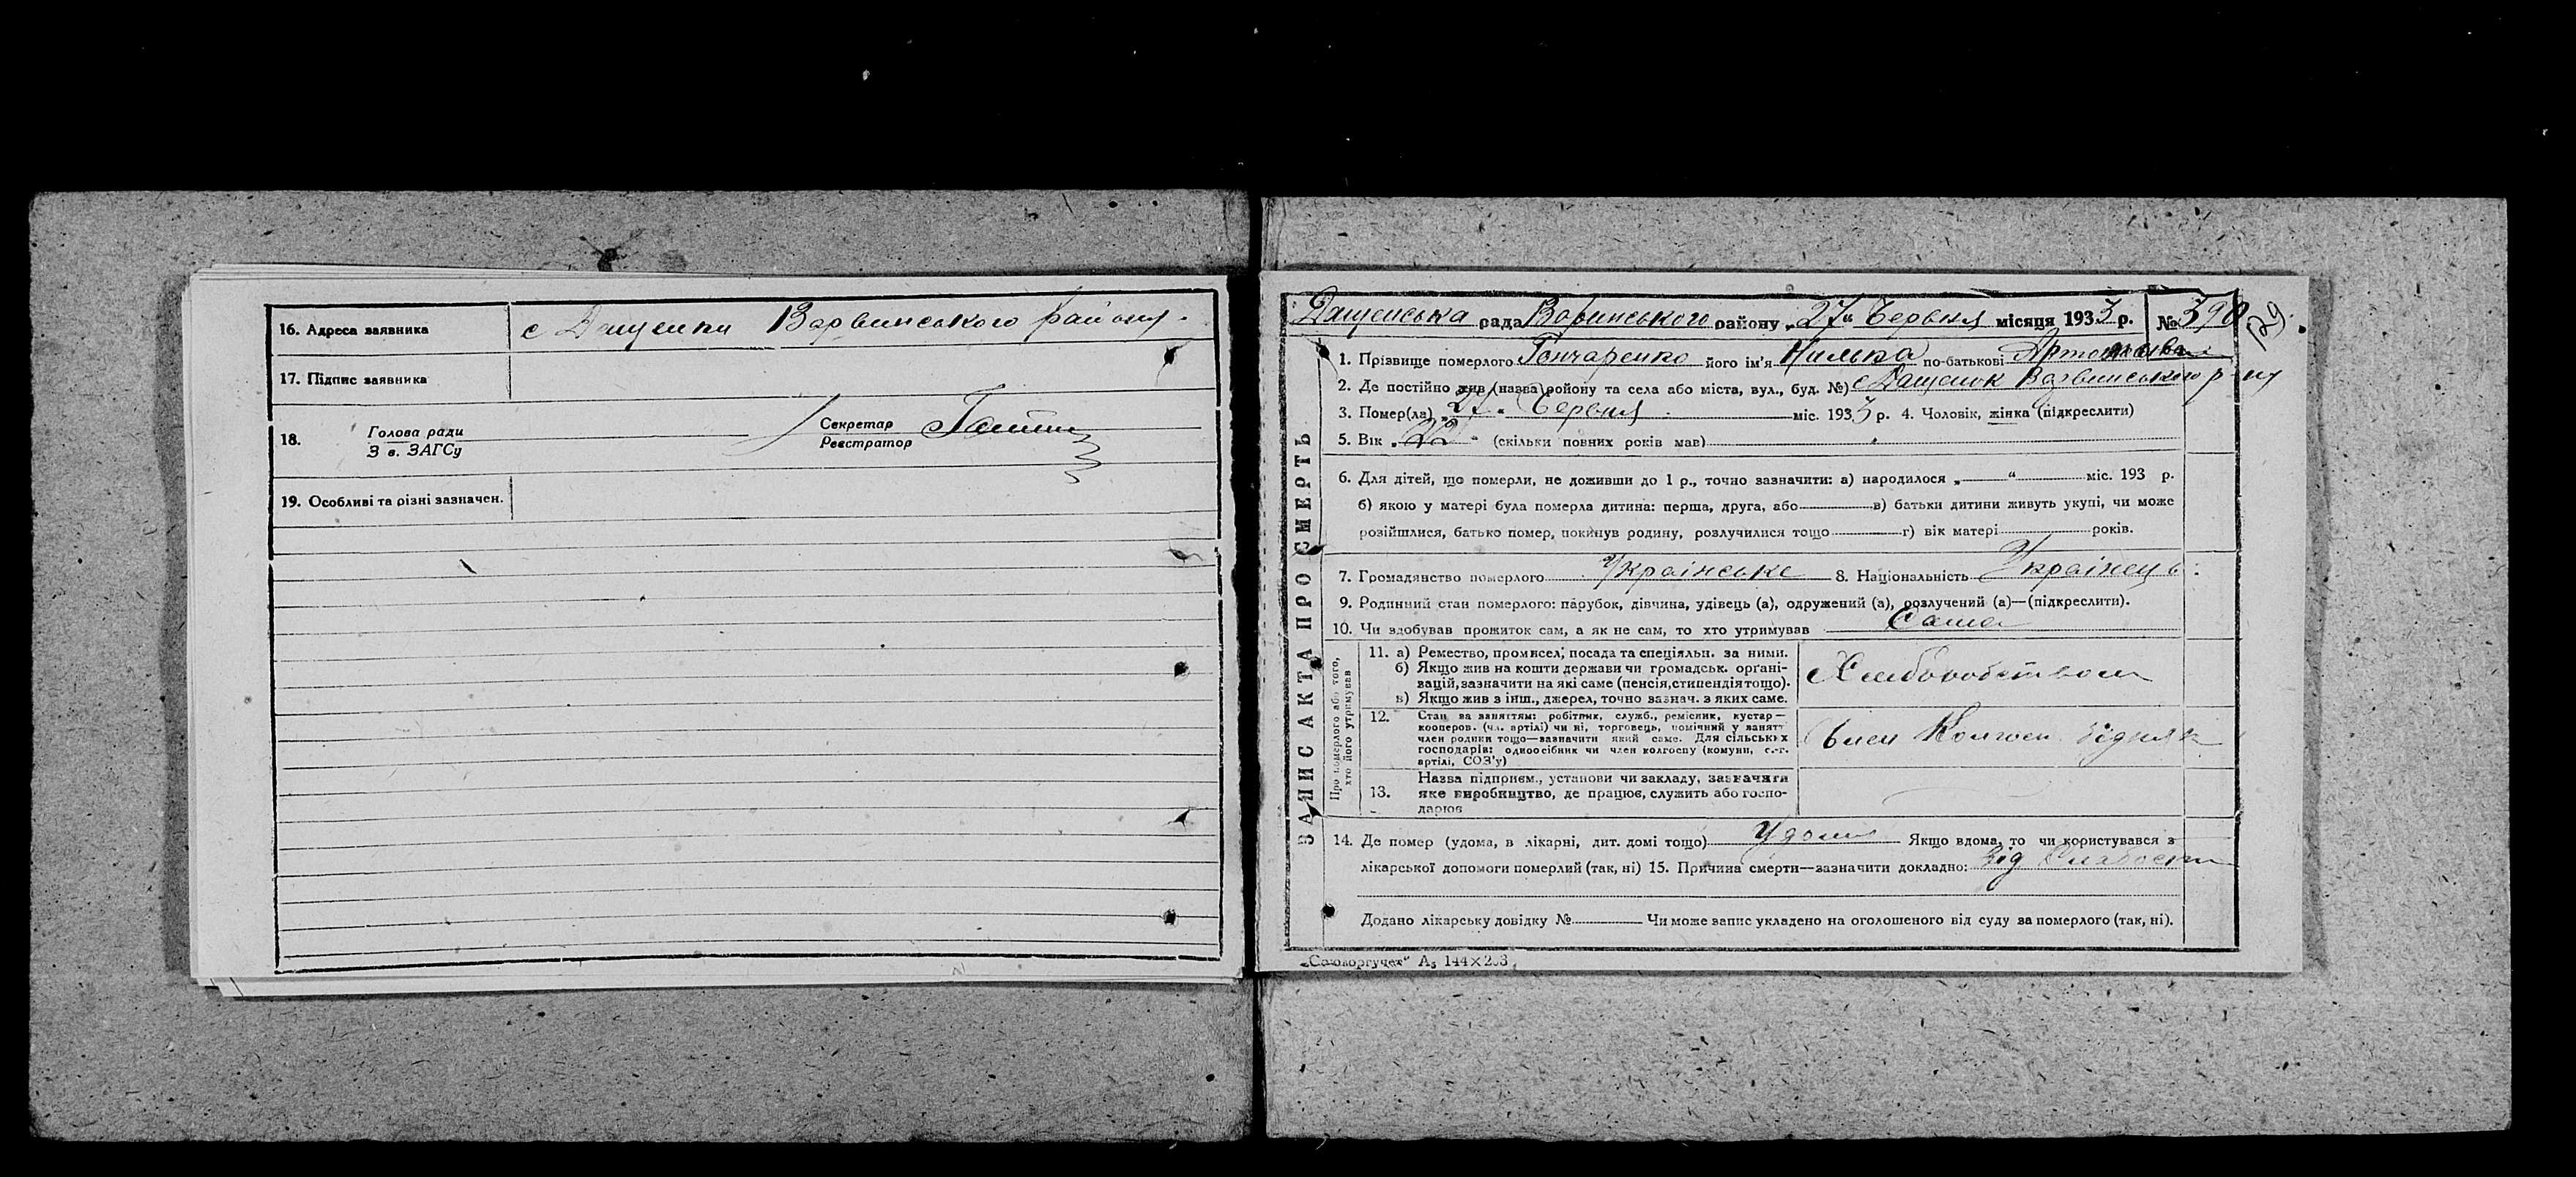 16. Адреса заявника с Дащенки Варвинського району.
17. Підпис заявника
18. Голова ради
З в. ЗАГСу
Секретар
Реєстратор
19. Особливі та різні зазначен.
ЗАПИС АКТА ПРО СМЕРТЬ
Дащенська рада Варвинського району „27" Червня місяця 1933 р. № 390
129
1. Прізвище померлого Гончаренко його ім'я Килька по-батькові
2. Де постійно жив (назва району та села або міста, вул., буд. №) с Дащенок Варвинського р-ну
3. Помер(ла) „27" Червня міс. 1933 р. 4. Чоловік, жінка (підкреслити)
5. Вік „22" (скільки повних років мав)
6. Для дітей, що померли, не доживши до 1 р., точно зазначити: а) народилося „ " міс. 193 р.
б) якою у матері була померла дитина: перша, друга, або в) батьки дитини живуть укупі, чи може
розійшлися, батько помер, покинув родину, розлучилися тощо г) вік матері років.
7. Громадянство померлого Українське 8. Національність Українець
9. Родинний стан померлого: парубок, дівчина, удівець (а), одружений (а), розлучений (а)—(підкреслити).
10. Чи здобував прожиток сам, а як не сам, то хто утримував Сама
Про померлого або того,
хто його утримував
11. а) Ремество, промисел, посада та спеціяльн. за ними.
б) Якщо жив на кошти держави чи громадськ. органі-
зацій, зазначити на які саме (пенсія, стипендія тощо).
в) Якщо жив з інш., джерел, точно зазнач. з яких саме.
Хліборобством
12. Стан за заняттям: робітник, служб., ремісник, кустар—
кооперов. (чл. артілі) чи ні, торговець, помічний у занятт
член родини тощо—зазначити який саме. Для сільських
господарів: одноосібник чи член колгоспу (комуни, с.-г.
артілі, СОЗ'у)
Член Колгосп бідняк
13. Назва підприєм., установи чи закладу, зазначити
яке виробництво, де працює, служить або госпо-
дарює
14. Де помер (удома, в лікарні, дит. домі тощо) Удома Якщо вдома, то чи користувався з
лікарської допомоги померлий (так, ні) 15. Причина смерти—зазначити докладно: Від Слабости
Додано лікарську довідку № Чи може запис укладено на оголошеного від суду за померлого (так, ні).
„Союзоргучет" А₅ 144×203